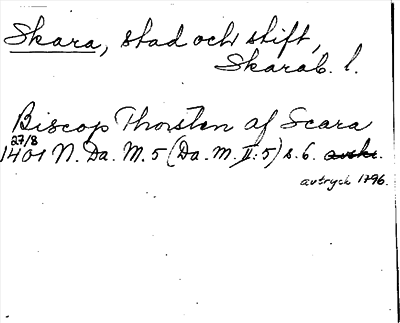 Skara, stad och stift,
Skarab. l.
Biscop Thorsten af Scara
27/8
1401 N. Da. M. 5 (Da. M. II:5) s. 6. avskr.
avtryck 1796.